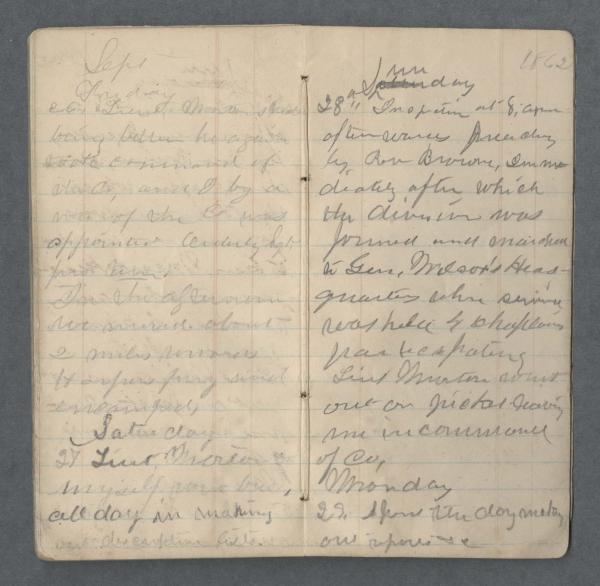 Sept
Friday
26 Lieut Morton
being better he again
took command of
the Co, and I by a
vote of the Co was
appointed Orderly Sgt
pro tem
In the afternoon
we moved about
2 miles towards
Harpers ferry and
encamped
Saturday
27 Lieut Morton &
myself
all day in making
out discriptive lists.
1862
Sunday
28" Inspection at 8, a.m
afterwards Preaching
by Rev Brown, Imme
diately after which
the division was
formed and marched
to Gen, Head-
quarters where service
was held 4 chaplains
participating
Lieut Morton went
out on picket leaving
me in command
of Co,
Monday
29 Spent the day making
out